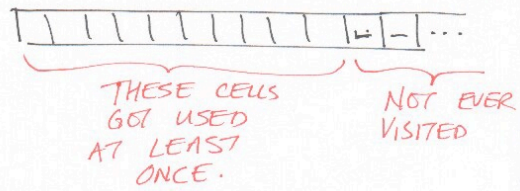 ⊔ - ...
THESE CELLS
GOT USED
AT LEAST
ONCE.
NOT EVER
VISITED